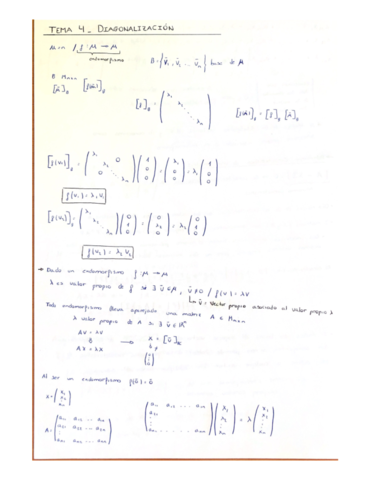 TEMA 4_ DIAGONALIZACIÓN
μ en / f : μ → μ
endomorfismo
B = { v̄₁, v̄₂ ... v̄ₙ } base de μ
[f(ū)]_B
[f]_B = ( λ₁ λ₂ ⋱ λₙ )
[f(ū)]_B = [f]_B [ū]_B
[f(v₁)]_B = ( λ₁ λ₂ 0 0 ⋱ λₙ ) ( 1 0 0 ) = ( λ₁ 0 0 ) = λ₁ ( 1 0 0 )
f(v₁) = λ₁ v₁
[f(v₂)]_B = ( λ₁ λ₂ ⋱ λₙ ) ( 0 1 0 ) = ( 0 λ₂ 0 ) = λ₂ ( 0 1 0 )
f(v₂) = λ₂ v₂
→ Dado un endomorfismo f : μ → μ
λ es valor propio de f ⇔ ∃ ū ∈ μ, ū ≠ 0 / f(v) = λv
ū = Vector propio asociado al valor propio λ
Todo endomorfismo lleva aparejada una matriz A ∈ Mₙₓₙ
λ valor propio de A
AV = λV
AX = λX
Al ser un endomorfismo f(ū) = ū
X = ( x₁ x₂ xₙ )
A = ( a₁₁ a₁₂ ... a₁ₙ
a₂₁ a₂₂ ... a₂ₙ
⋮
aₙ₁ aₙ₂ ... aₙₙ )
( a₁₁ a₁₂ ... a₁ₙ
a₂₁
⋮
aₙ₁ ... aₙₙ ) ( x₁ x₂ ⋮ xₙ ) = λ ( x₁ x₂ ⋮ xₙ )